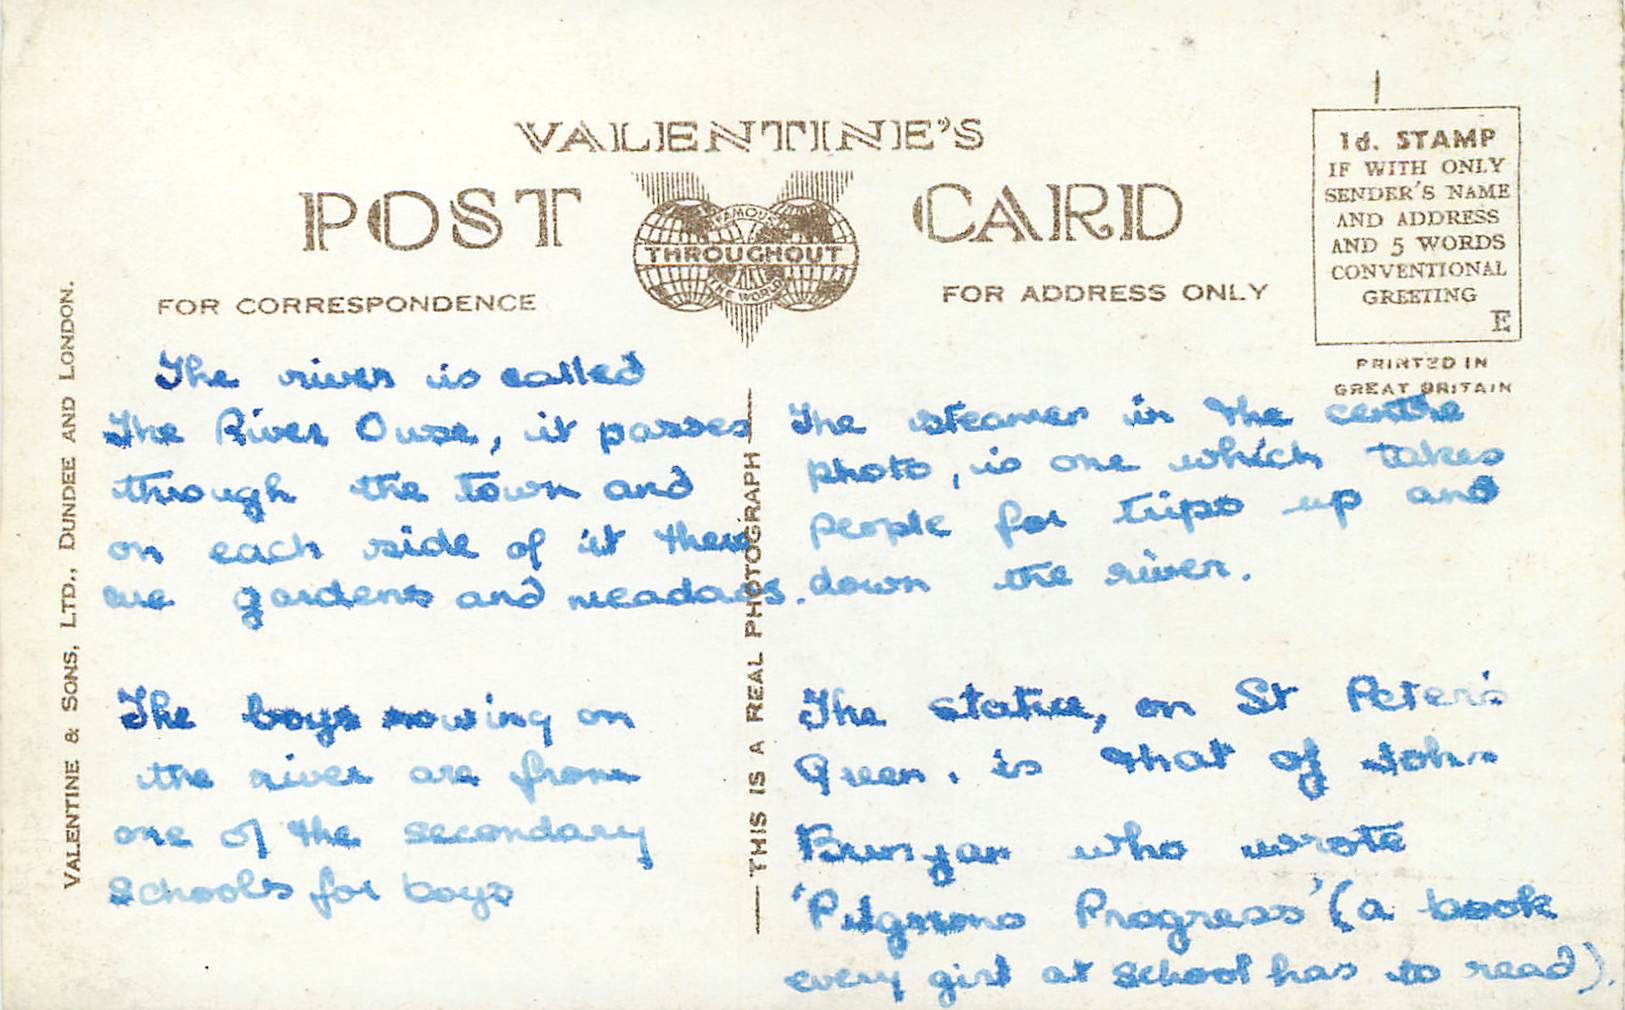 VALENTINE'S
POST CARD
FAMOUS
THROUGHOUT
THE WORLD
FOR CORRESPONDENCE
FOR ADDRESS ONLY
1d. STAMP
IF WITH ONLY
SENDER'S NAME
AND ADDRESS
AND 5 WORDS
CONVENTIONAL
GREETING
E
PRINTED IN
GREAT BRITAIN
VALENTINE & SONS, LTD., DUNDEE AND LONDON.
THIS IS A REAL PHOTOGRAPH
The river is called
The River Ouse, it passes
through the town and
on each side of it there
are gardens and meadows.
The boys rowing on
the river are from
one of the secondary
schools for boys
The steamer in the centre
photo, is one which takes
people for trips up and
down the river.
The statue, on St Peter's
Green, is that of John
Bunyan who wrote
'Pilgrims Progress' (a book
every girl at school has to read).